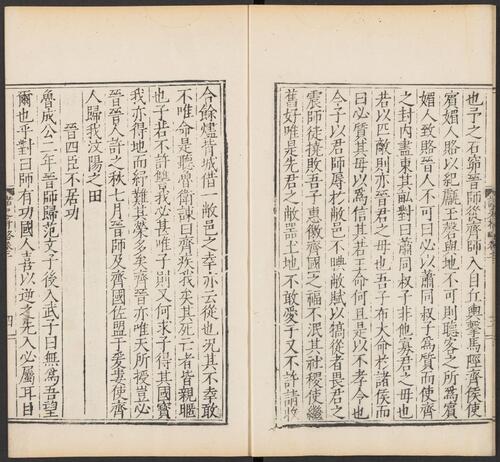 也予之石窌晉師從齊師入自丘輿擊馬陘齊侯使
賓媚人賂以紀甗玉磬與地不可則聽客之所爲賓
媚人致賂晉人不可曰必以蕭同叔子爲質而使齊
之封内盡東其畝對曰蕭同叔子非他寡君之母也
若以匹敵則亦晉君之母也吾子布大命於諸侯而
曰必質其母以爲信其若王命何且是以不孝令也
今子以君師辱於敝邑不腆敝賦以犒從者畏君之
震師徒撓敗吾子惠徼齊國之福不泯其社稷使繼
舊好唯是先君之敝器土地不敢愛子又不許請收
合餘燼背城借一敝邑之幸亦云從也況其不幸敢
不唯命是聽魯衛諫曰齊疾我矣其死亡者皆親暱
也子若不許讐我必甚唯子則又何求子得其國寶
我亦得地而紓難其榮多矣齊晉亦唯天所授豈必
晉晉人許之秋七月晉師及齊國佐盟于爰婁使齊
人歸我汶陽之田
晉四臣不居功
魯成公二年晉師歸范文子後入武子曰無爲吾望
爾也乎對曰師有功國人喜以逆之先入必屬耳目
四